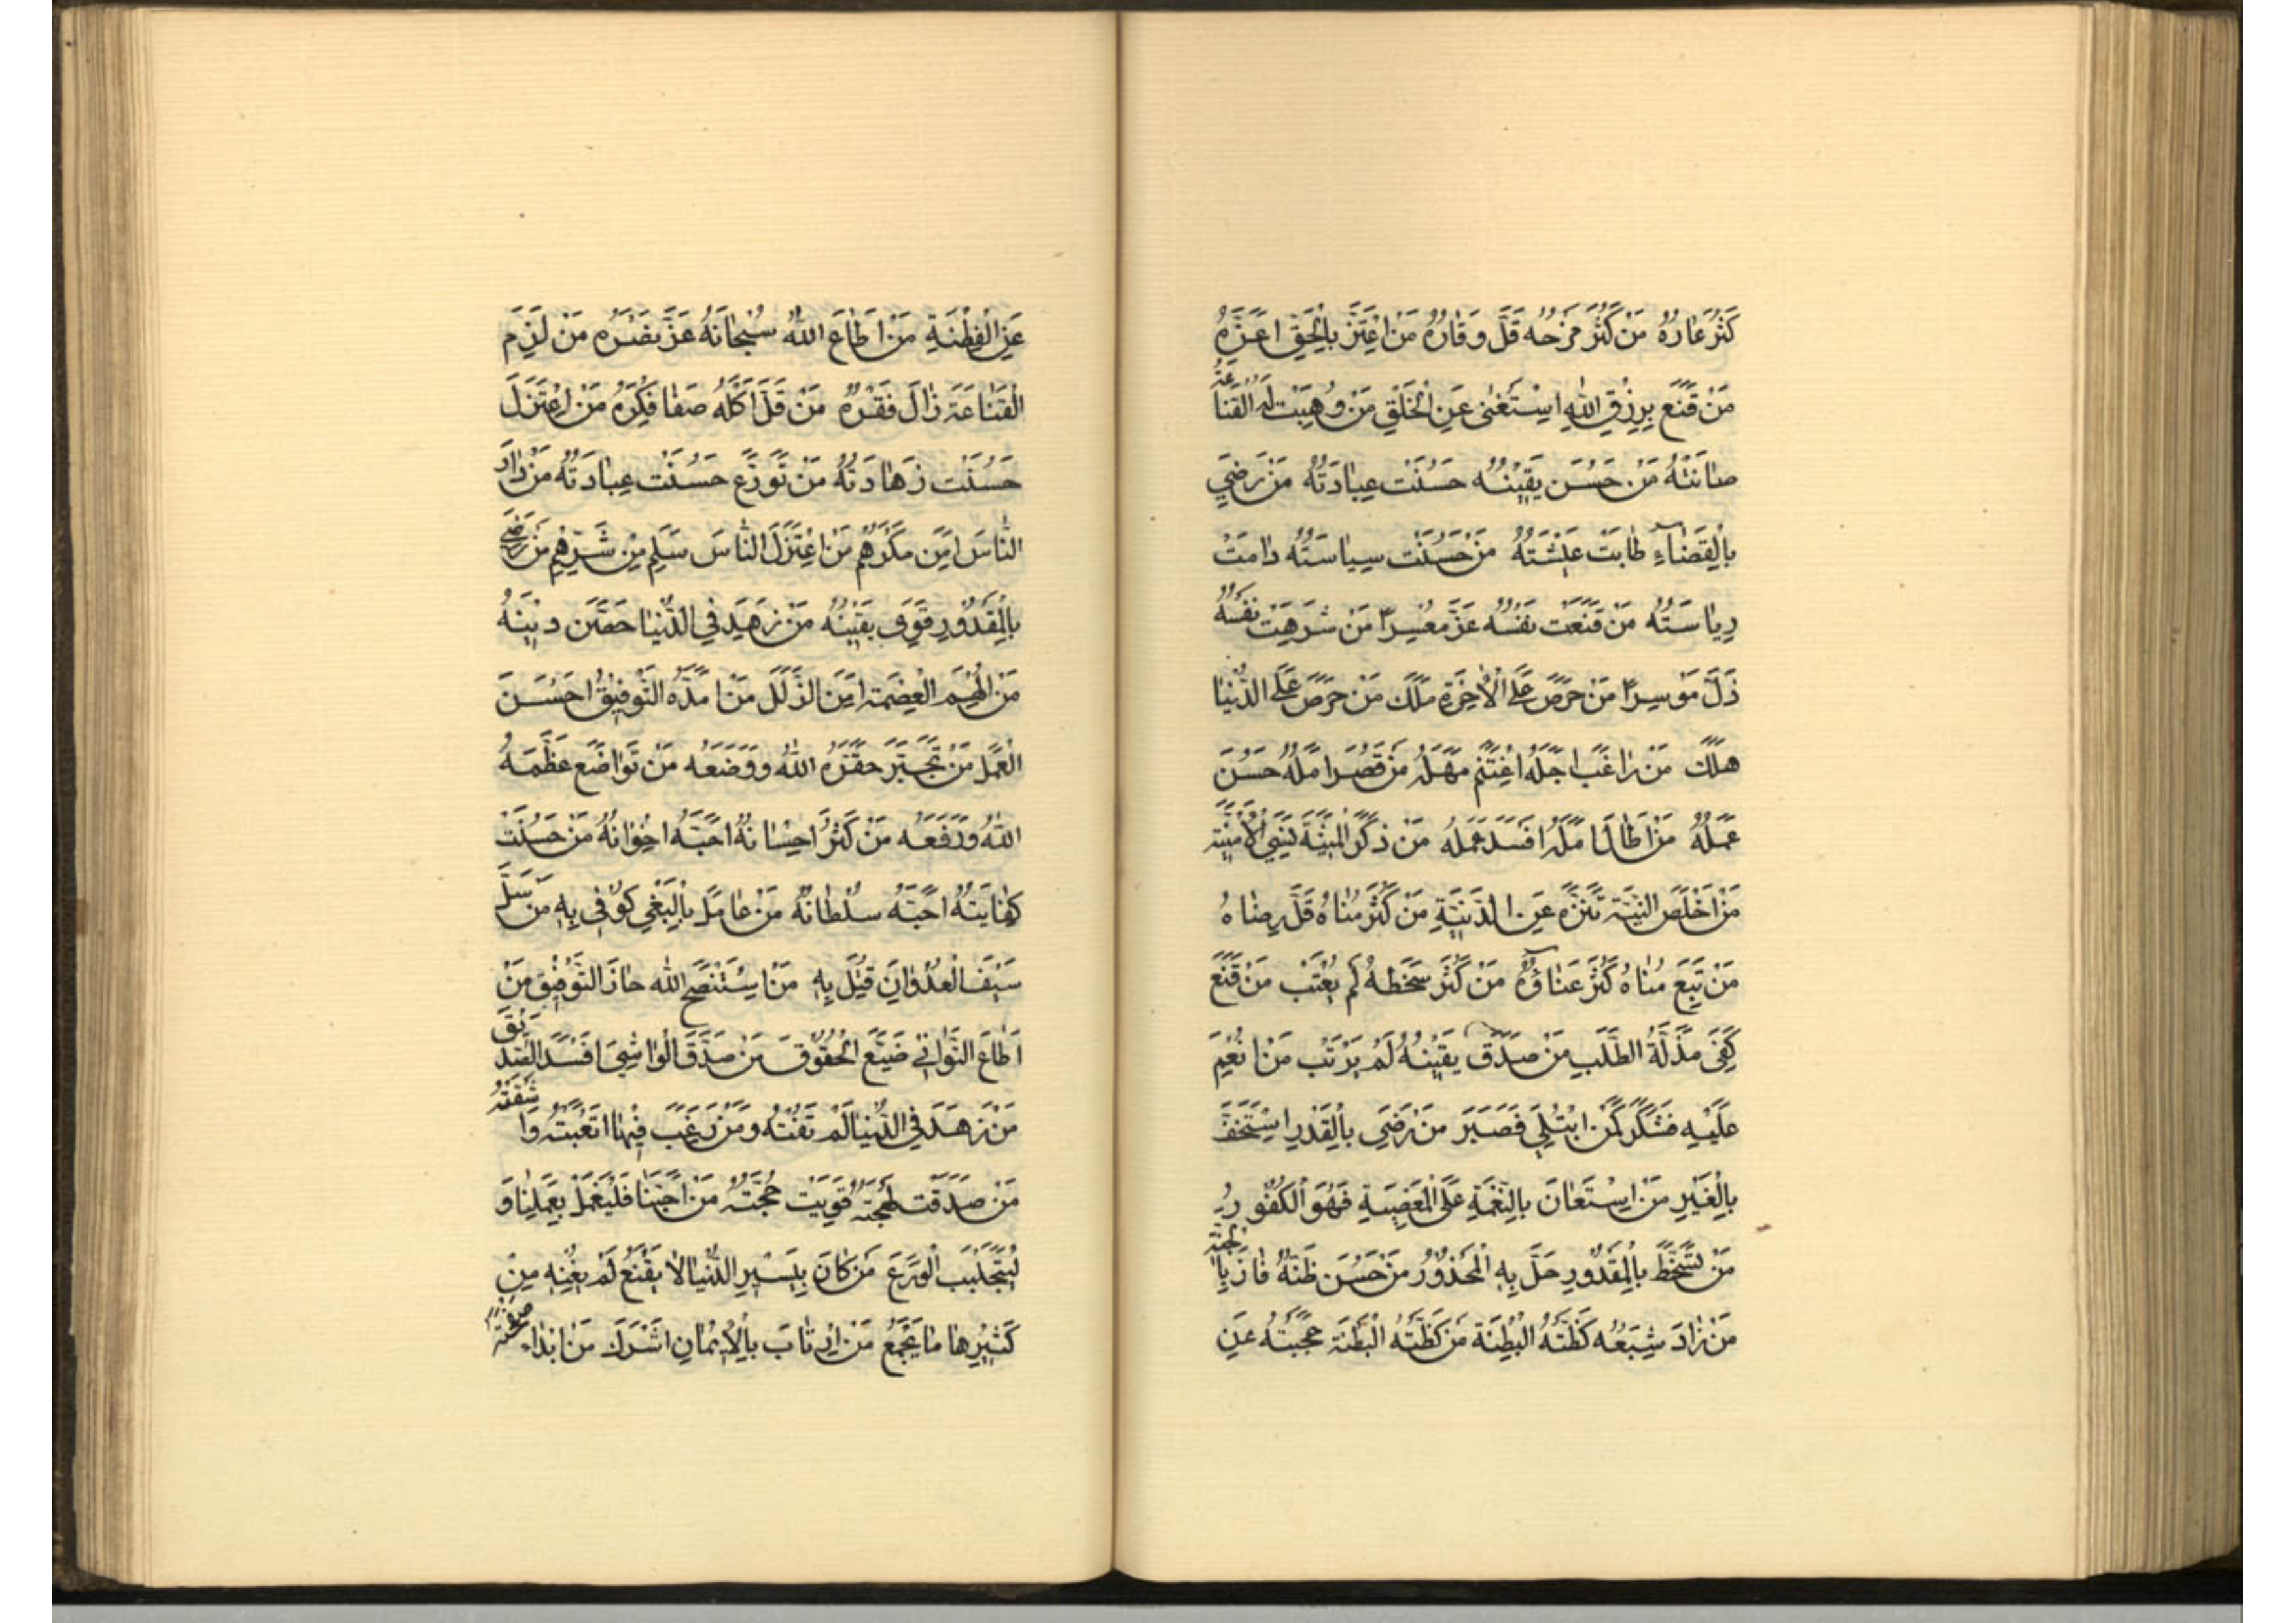 كَثُرَ عَارُهُ مَنْ كَثُرَ مَزْحُهُ قَلَّ وَقَارُهُ مَنْ اعْتَزَّ بِالْحَقِّ اعَزَّهُ
مَنْ قَنَعَ بِرِزْقِ اللّٰهِ اسْتَغْنٰى عَنِ الْخَلْقِ مَنْ وُهِبَتْ لَهُ الْقَنَاعَةُ
صٰانَتْهُ مَنْ حَسُنَ يَقِيْنُهُ حَسُنَتْ عِبٰادَتُهُ مَنْ رَضِيَ
بِالْقَضٰاءِ طٰابَتْ عَيْشَتُهُ مَنْ حَسُنَتْ سِيٰاسَتُهُ دٰامَتْ
رِيٰاسَتُهُ مَنْ قَنَعَتْ نَفْسُهُ عَزَّ مُعْسِراً مَنْ شَرِهَتْ نَفْسُهُ
ذَلَّ مُوسِراً مَنْ حَرَصَ عَلَى الْاٰخِرَةِ مَلَكَ مَنْ حَرَصَ عَلَى الدُّنْيٰا
هَلَكَ مَنْ رٰاغَبَ اجَلَهُ اغْتَنَمَ مَهَلَهُ مَنْ قَصُرَ امَلُهُ حَسُنَ
عَمَلُهُ مَنْ اطٰالَ امَلَهُ افْسَدَ عَمَلَهُ مَنْ ذَكَرَ الْمَنِيَّةَ نَسِيَ الْاُمْنِيَّةَ
مَنْ اخْلَصَ النِّيَّةَ تَنَزَّهَ عَنِ الدَّنِيَّةِ مَنْ كَثُرَ مُنٰاهُ قَلَّ رِضٰاهُ
مَنْ تَبِعَ مُنٰاهُ كَثُرَ عَنٰاؤُهُ مَنْ كَثُرَ سَخَطُهُ لَمْ يُعْتَبْ مَنْ قَنَعَ
كُفِيَ مَذَلَّةَ الطَّلَبِ مَنْ صَدَقَ يَقِيْنُهُ لَمْ يَرْتَبْ مَنْ انْعِمَ
عَلَيْهِ فَشَكَرَ كَمَنْ ابْتُلِيَ فَصَبَرَ مَنْ رَضِيَ بِالْقَدَرِ اسْتَخَفَّ
بِالْغِيَرِ مَنْ اسْتَعٰانَ بِالنِّعْمَةِ عَلَى الْمَعْصِيَةِ فَهُوَ الْكَفُورُ
مَنْ تَسَخَّطَ بِالْمَقْدُورِ حَلَّ بِهِ الْمَحْذُوْرُ مَنْ حَسُنَ ظَنُّهُ فٰازَ بِالْجَنَّةِ
مَنْ زٰادَ شِبَعُهُ كَظَّتْهُ الْبِطْنَةُ مَنْ كَظَّتْهُ الْبِطْنَةُ حَجَبَتْهُ عَنِ
عَنِ الْفِطْنَةِ مَنْ اطٰاعَ اللّٰهَ سُبْحٰانَهُ عَزَّ نَصْرُهُ مَنْ لَزِمَ
الْقَنٰاعَةَ زٰالَ فَقْرُهُ مَنْ قَلَّ اكْلُهُ صَفٰا فِكْرُهُ مَنْ اعْتَزَلَ
حَسُنَتْ زَهٰادَتُهُ مَنْ تَوَرَّعَ حَسُنَتْ عِبٰادَتُهُ مَنْ دٰارَ
النّٰاسَ امِنَ مَكْرَهُمْ مَنْ اعْتَزَلَ النّٰاسَ سَلِمَ مِنْ شَرِّهِمْ مَنْ رَضِيَ
بِالْمَقْدُوْرِ قَوِيَ يَقِيْنُهُ مَنْ زَهِدَ فِي الدُّنْيٰا حَصَّنَ دِيْنَهُ
مَنْ الْهِمَ الْعِصْمَةَ امِنَ الزَّلَلَ مَنْ امَدَّهُ التَّوْفِيْقُ احْسَنَ
الْعَمَلَ مَنْ تَجَبَّرَ حَقَّرَهُ اللّٰهُ وَوَضَعَهُ مَنْ تَوٰاضَعَ عَظَّمَهُ
اللّٰهُ وَرَفَعَهُ مَنْ كَثُرَ احْسٰانُهُ احَبَّهُ اخْوٰانُهُ مَنْ حَسُنَتْ
كِفٰايَتُهُ احَبَّهُ سُلْطٰانُهُ مَنْ عٰامَلَ بِالْبَغْيِ كُوْفِيَ بِهِ مَنْ سَلَّ
سَيْفَ الْعُدْوٰانِ قُتِلَ بِهِ مَنْ اسْتَنْصَحَ اللّٰهَ حٰازَ التَّوْفِيْقَ مَنْ
اطٰاعَ التَّوٰانِي ضَيَّعَ الْحُقُوْقَ مَنْ صَدَّقَ الْوٰاشِيَ افْسَدَ الصَّدِيْقَ
مَنْ زَهَدَ فِي الدُّنْيٰا لَمْ تَفُتْهُ وَمَنْ رَغِبَ فِيْهٰا اتْعَبَتْهُ وَاشْقَتْهُ
مَنْ صَدَقَتْ لَهْجَتُهُ قَوِيَتْ حُجَّتُهُ مَنْ احَبَّنٰا فَلْيَعْمَلْ بِعَمَلِنٰا وَ
لْيَتَجَلْبَبِ الْوَرَعَ مَنْ كٰانَ بِيَسِيْرِ الدُّنْيٰا لٰا يَقْنَعُ لَمْ يُغْنِهِ مِنْ
كَثِيْرِهٰا مٰا يَجْمَعُ مَنْ ارْتٰابَ بِالْاِيْمٰانِ اشْرَكَ مَنْ ابْدٰاءَ صَفْحَتَهُ